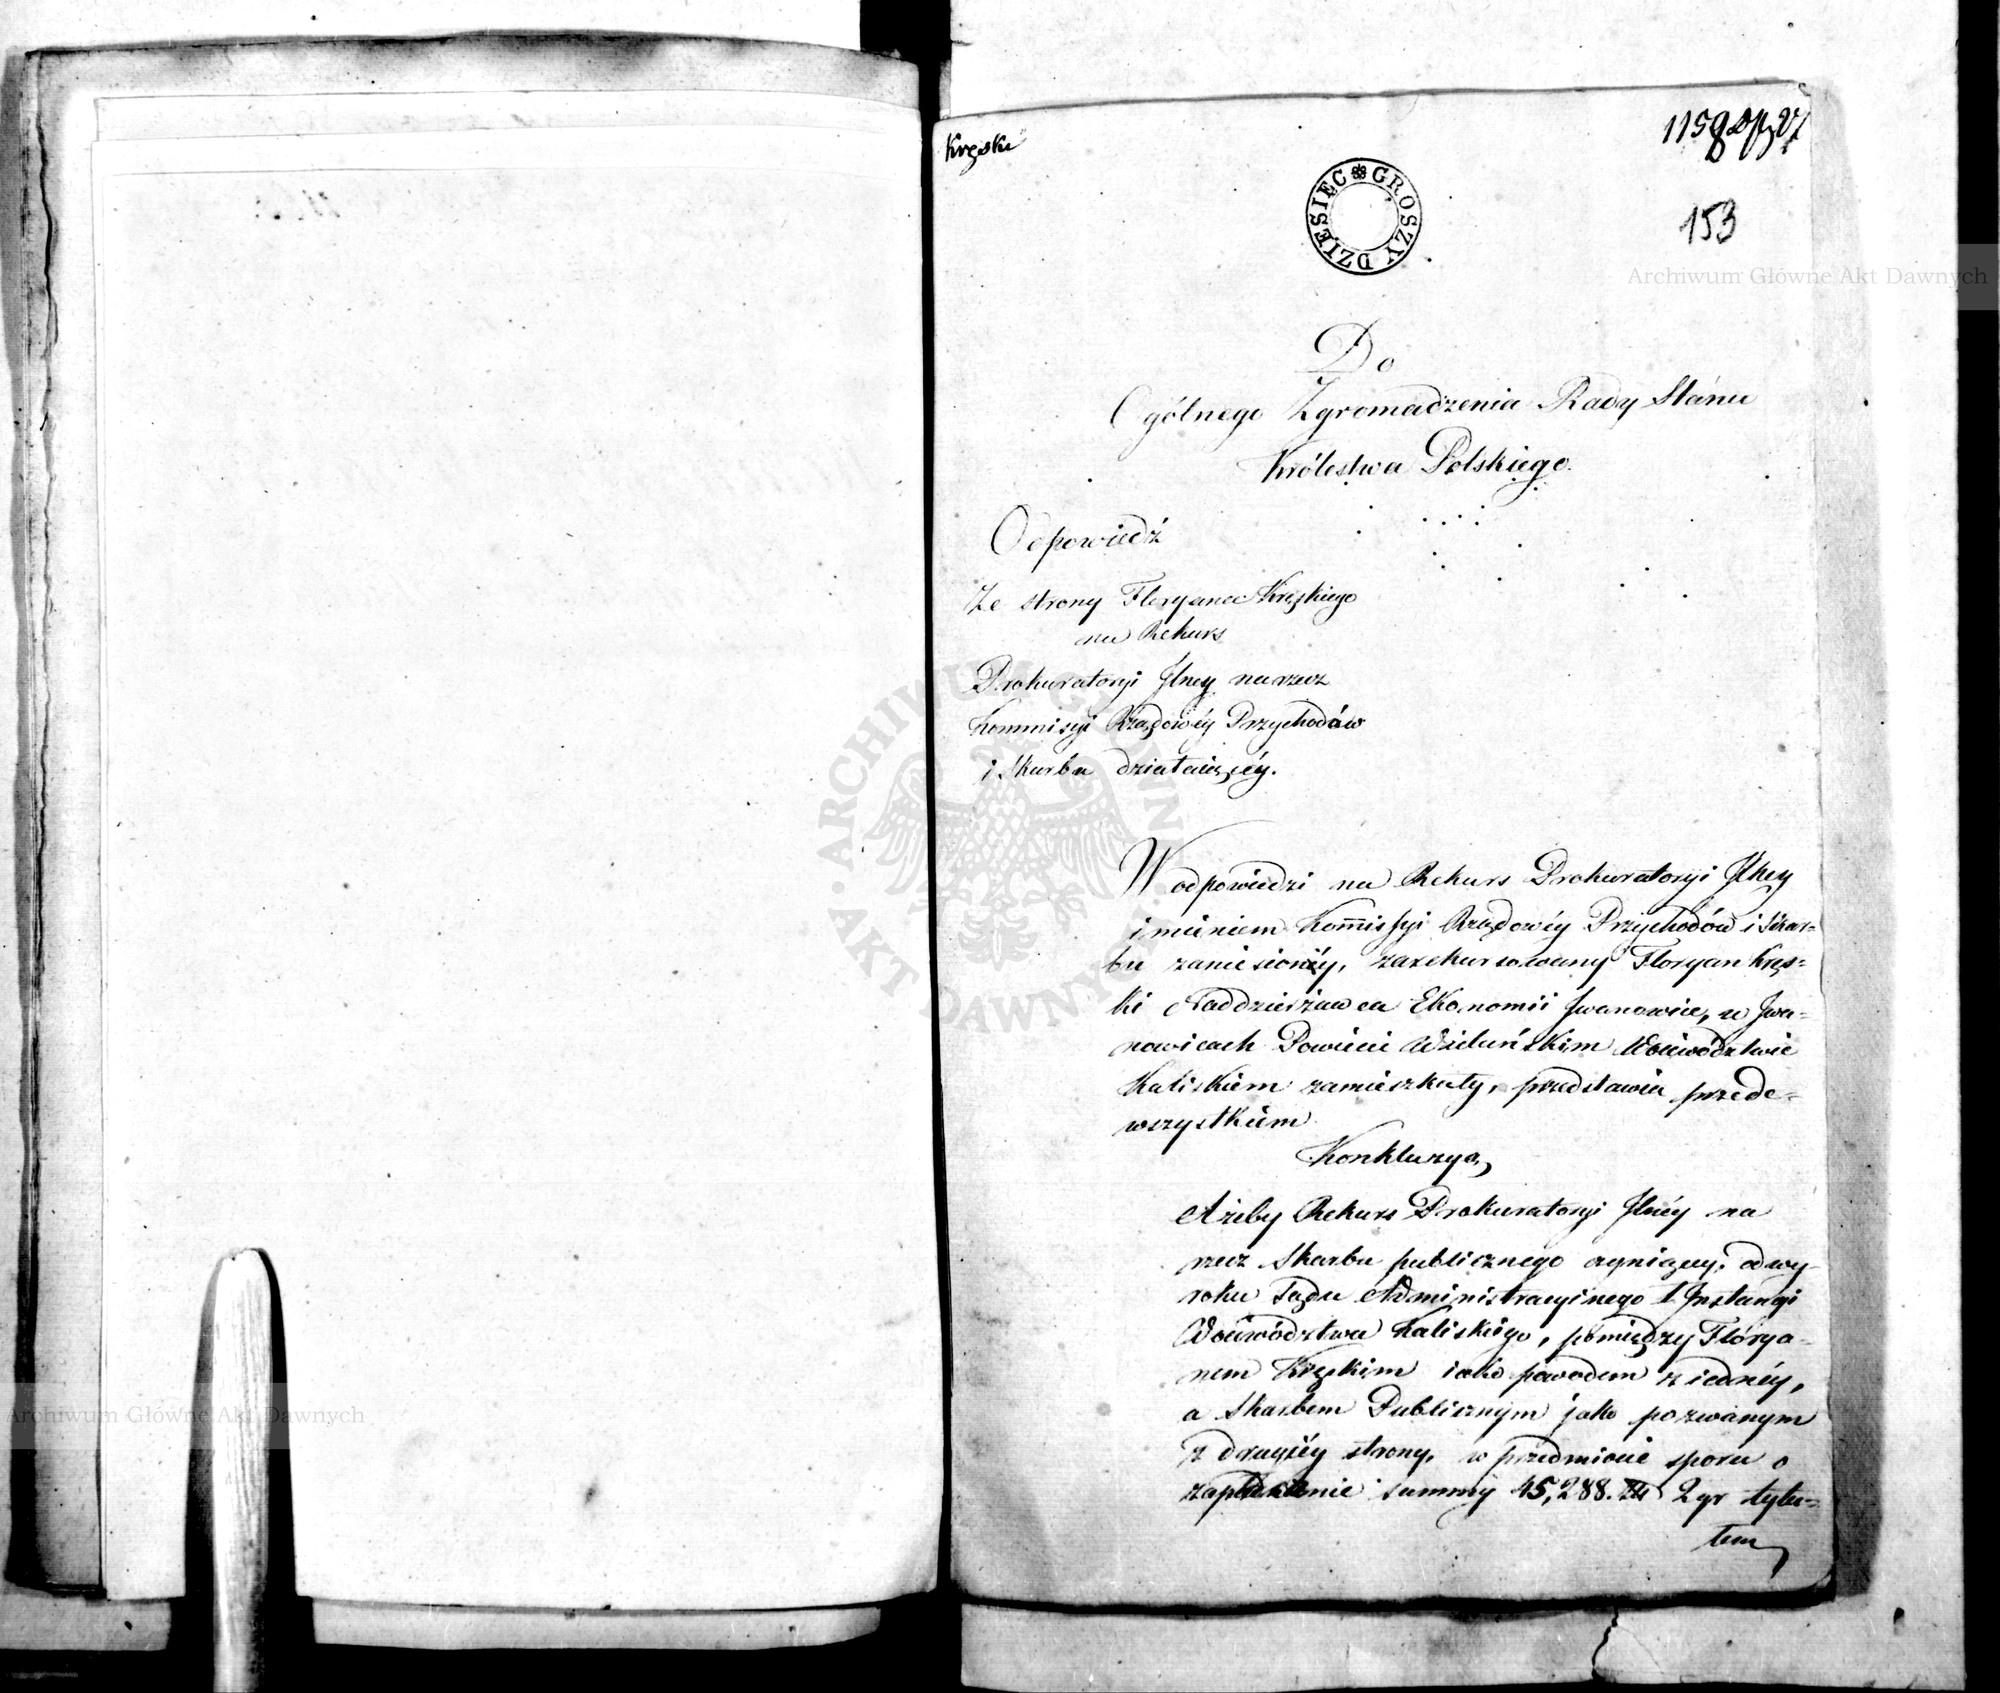 Kręski
153
DZIESIĘC GROSZY
Do
Ogólnego Zgromadzenia Rady Stánu
Królestwa Polskiego.
Odpowiedź
Ze strony Floryana Kręskiego
na Rekurs
Prokuratoryi Jlney na rzecz
Kommisyi Rządowéy Przychodów
i Skarbu działaiącéy.
W odpowiedzi na Rekurs Prokuratoryi Jlney
imieniem Kommissyi Rządowéy Przychodów i Skar=
bu zaniesionéy, zarekursowany Floryan Kręs=
ki Naddzierżawca Ekonomii Jwanowice, w Jwa=
nowicach Powiecie Wieluńskim Woiewództwie
Kaliskiem zamieszkały, przedstawia przede=
wszystkiem
Konkluzyą,
Ażeby Rekurs Prokuratoryi Jlnéy na
rzecz Skarbu publicznego czyniącey, od wy=
roku Sądu Administracyinego I Jnstancyi
Woiewództwa Kaliskiego, pomiędzy Flórya=
nem Kręskim iako powodem z iednéy,
a Skarbem Publicznym jako pozwanym
z drugiéy strony, w przedmiocie sporu o
zapłacenie summy 45,288. Zł 2 gr tytu=
łem
Archiwum Główne Akt Dawnych
Archiwum Główne Akt Dawnych
ARCHIWUM GŁÓWNE AKT DAWNYCH